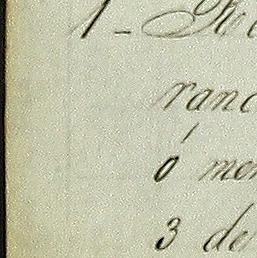 1 - Re
ranc
ó men
3 de